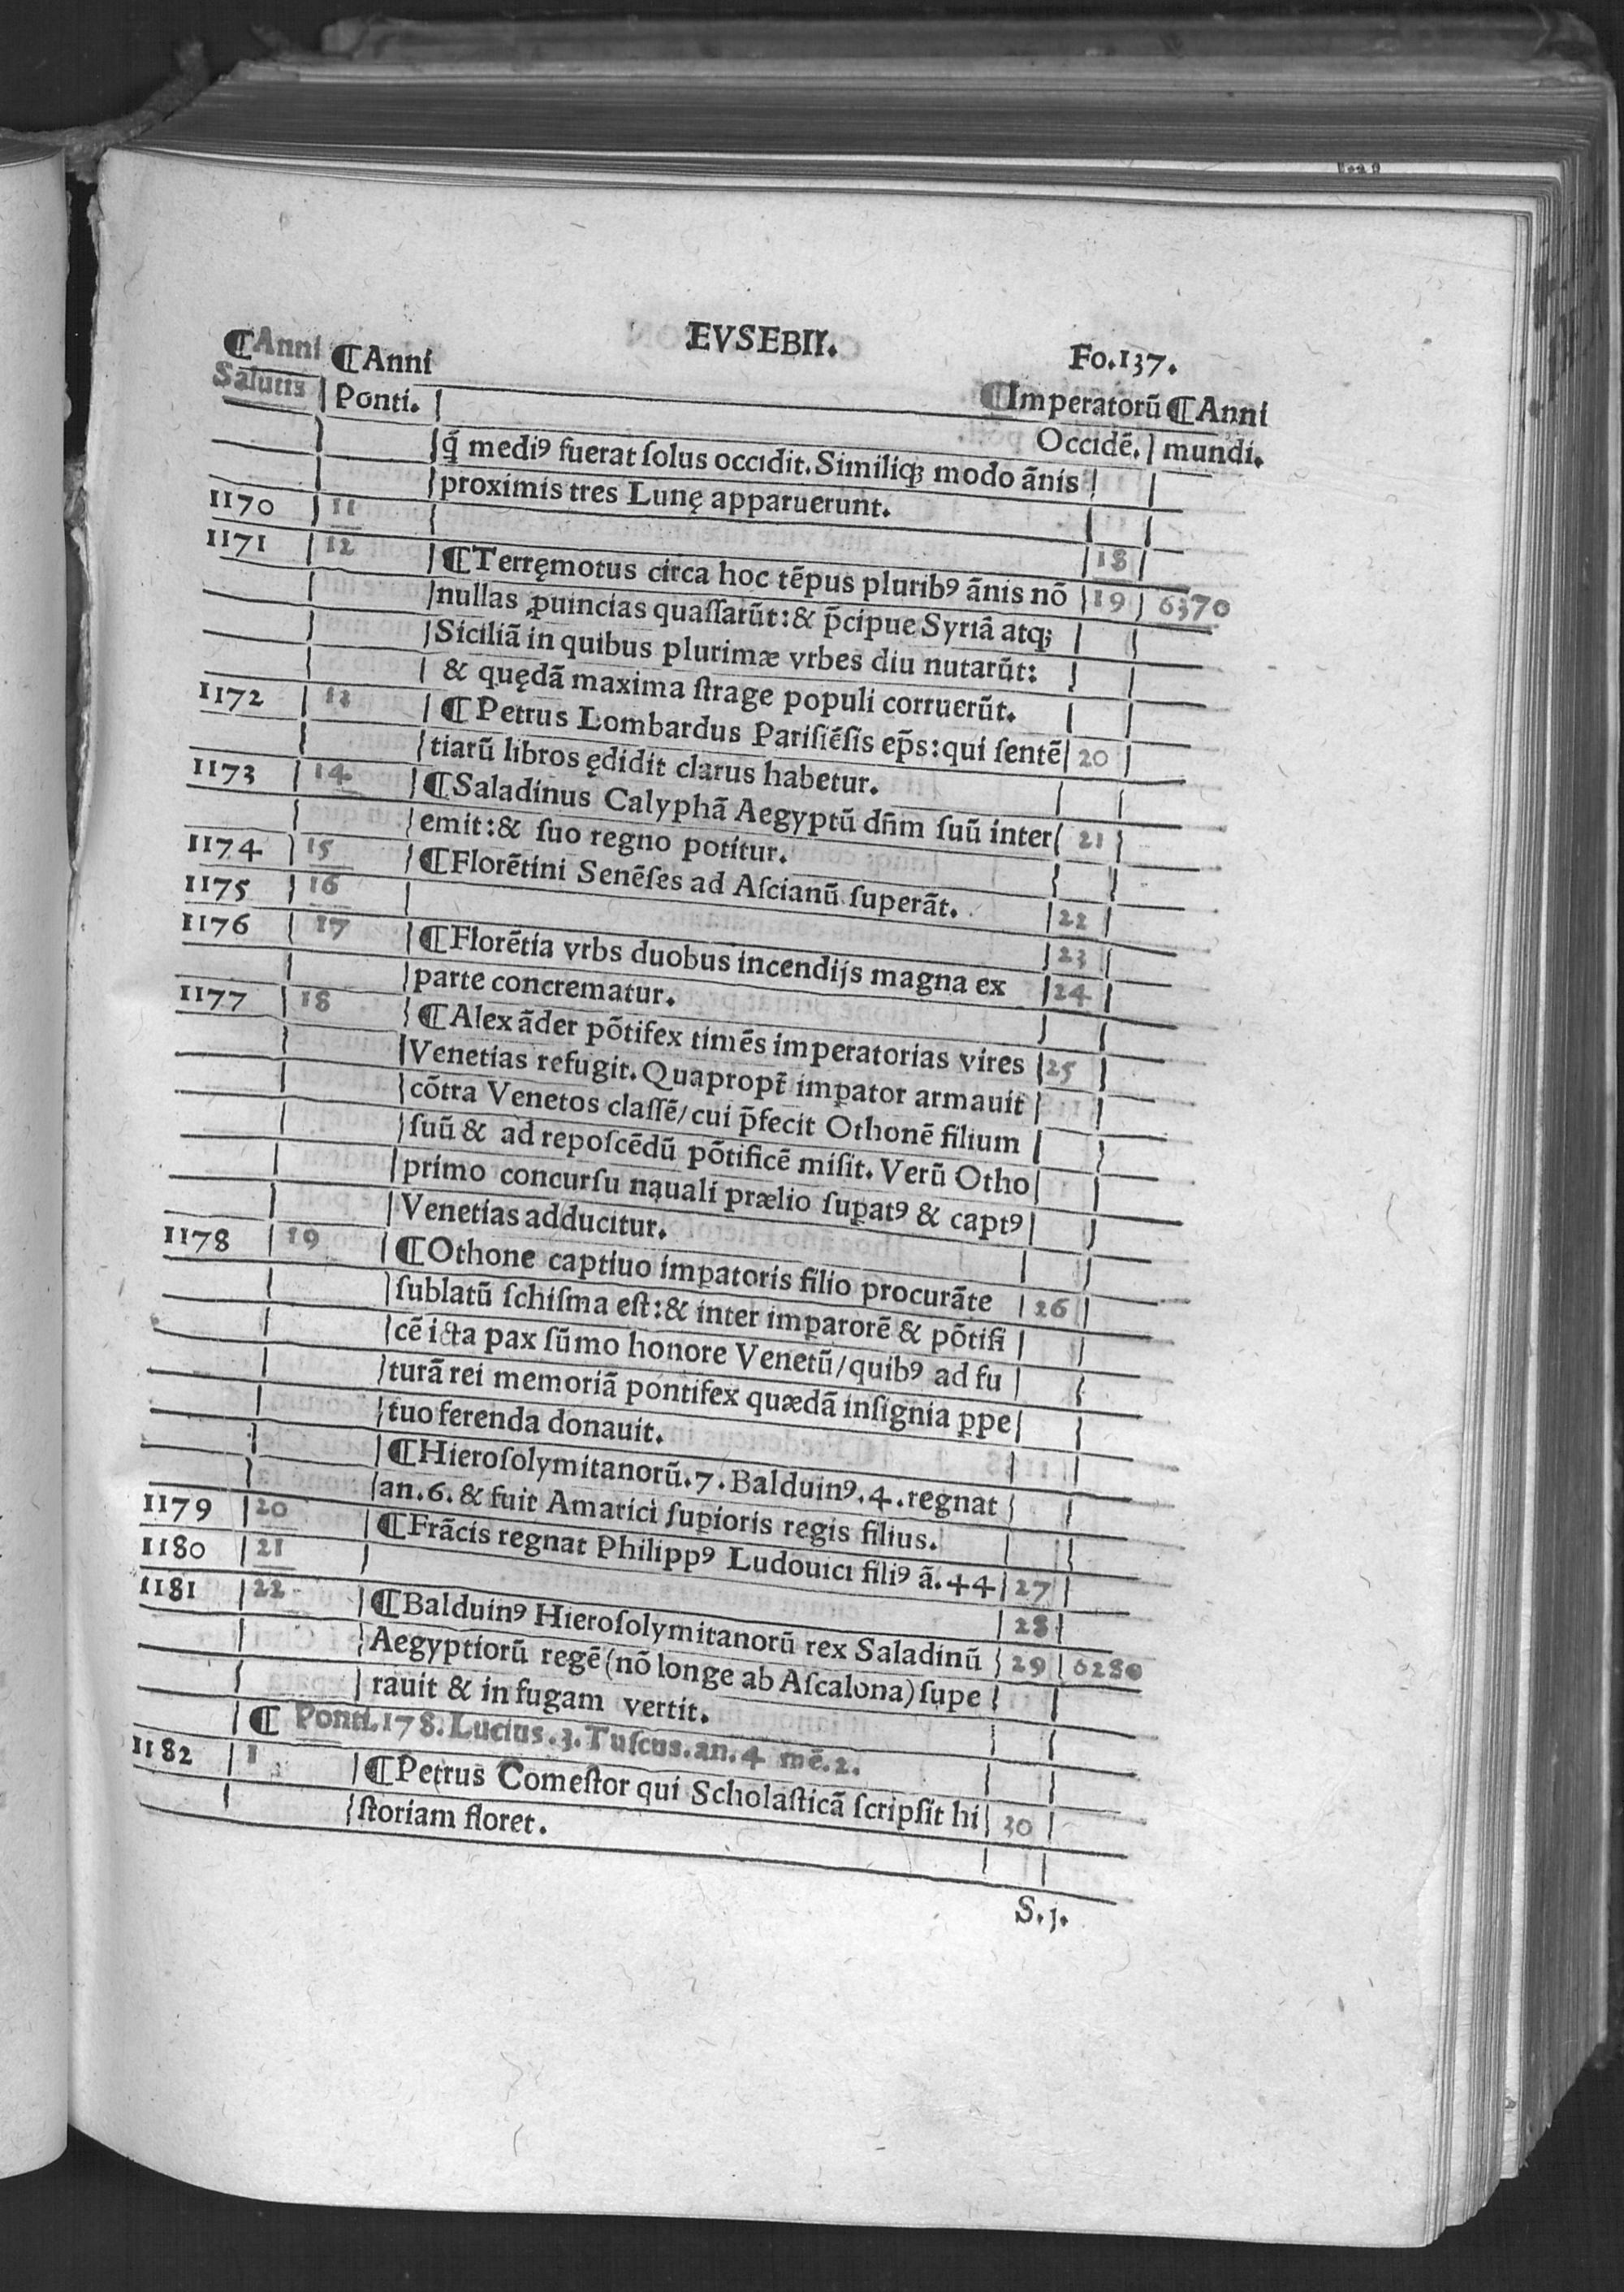 EVSEBII. Fo.137.
¶Anni ¶Anni ¶Imperatorũ ¶Anni
Salutis Ponti. Occidẽ. mundi.
q̃ mediꝰ fuerat ſolus occidit. Similiqꝫ modo ãnis
proximis tres Lunę apparuerunt.
1170 11 18
1171 12 ¶Terręmotus circa hoc tẽpus pluribꝰ ãnis nõ 19 6370
nullas ꝓuincias quaſſarũt: & p̃cipue Syriã atqꝫ
Siciliã in quibus plurimæ vrbes diu nutarũt:
& quędã maxima ſtrage populi corruerũt.
1172 13 ¶Petrus Lombardus Pariſiẽſis ep̃s: qui ſentẽ 20
tiarũ libros ędidit clarus habetur.
1173 14 ¶Saladinus Calyphã Aegyptũ dñm ſuũ inter 21
emit: & ſuo regno potitur.
1174 15 ¶Florẽtini Senẽſes ad Aſcianũ ſuperãt. 22
1175 16 23
1176 17 ¶Florẽtia vrbs duobus incendijs magna ex 24
parte concrematur.
1177 18 ¶Alexãder põtifex timẽs imperatorias vires 25
Venetias refugit. Quapropt̃ imꝑator armauit
cõtra Venetos claſſẽ/ cui p̃fecit Othonẽ filium
ſuũ & ad repoſcẽdũ põtificẽ miſit. Verũ Otho
primo concurſu nauali prælio ſuꝑatꝰ & captꝰ
Venetias adducitur.
1178 19 ¶Othone captiuo imꝑatoris filio procurãte 26
ſublatũ ſchiſma eſt: & inter imꝑarorẽ & põtifi
cẽ icta pax ſũmo honore Venetũ/ quibꝰ ad fu
turã rei memoriã pontifex quædã inſignia ꝑpe
tuo ferenda donauit.
¶Hieroſolymitanorũ.7. Balduinꝰ.4. regnat
an.6. & fuit Amarici ſuꝑioris regis filius.
1179 20 ¶Frãcis regnat Philippꝰ Ludouici filiꝰ ã.44 27
1180 21 28
1181 22 ¶Balduinꝰ Hieroſolymitanorũ rex Saladinũ 29 6280
Aegyptiorũ regẽ (nõ longe ab Aſcalona) ſupe
rauit & in fugam vertit.
¶ Ponti.178. Lucius.3. Tuſcus.an.4 mẽ.2.
1182 1 ¶Petrus Comeſtor qui Scholaſticã ſcripſit hi 30
ſtoriam floret.
S.j.